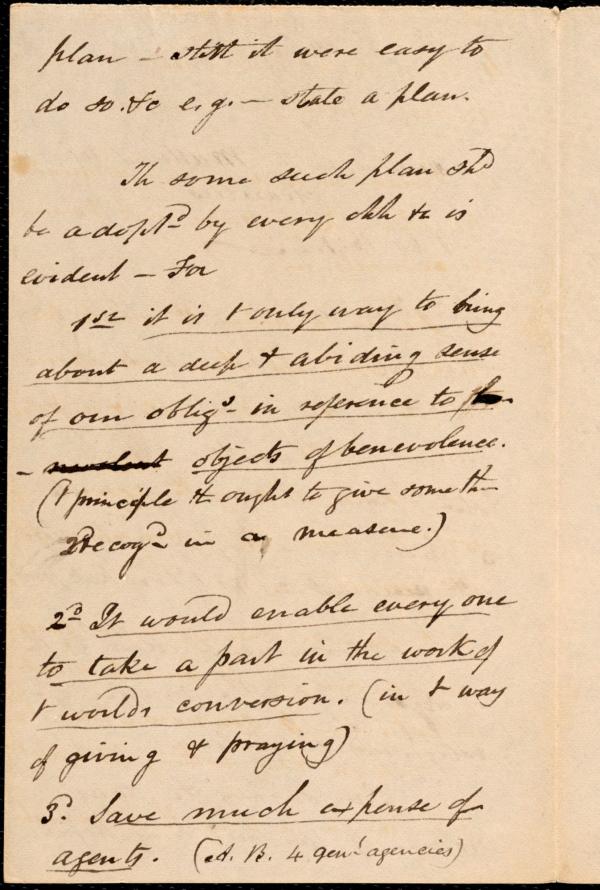 plan – still it were easy to
do so. &c e. g. – state a plan.
Th some such plan shd
be adoptd by every chh &c is
evident – For
1st it is t only way to bring
about a deep & abiding sense
of our obligs in reference to
objects of benevolence.
(t principle tt ought to give someth
recogd in a measure.)
2d It would enable every one
to take a part in the work of
t worlds conversion. (in t way
of giving & praying)
3d. Save much expense of
agents. (A. B. 4 genl agencies)